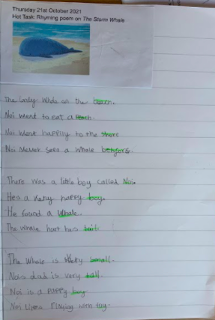 Thursday 21st October 2021
Hot Task: Rhyming poem on The Storm Whale
The lonly
Noi went to eat a
Noi went happily to the shore
Noi never sees a whale
There was a little boy called Noi.
He's a very happy boy.
He found a whale.
The whale hurt his tail.
The whale is very small.
Noi's dad is very tall.
Noi is a happy boy
Noi